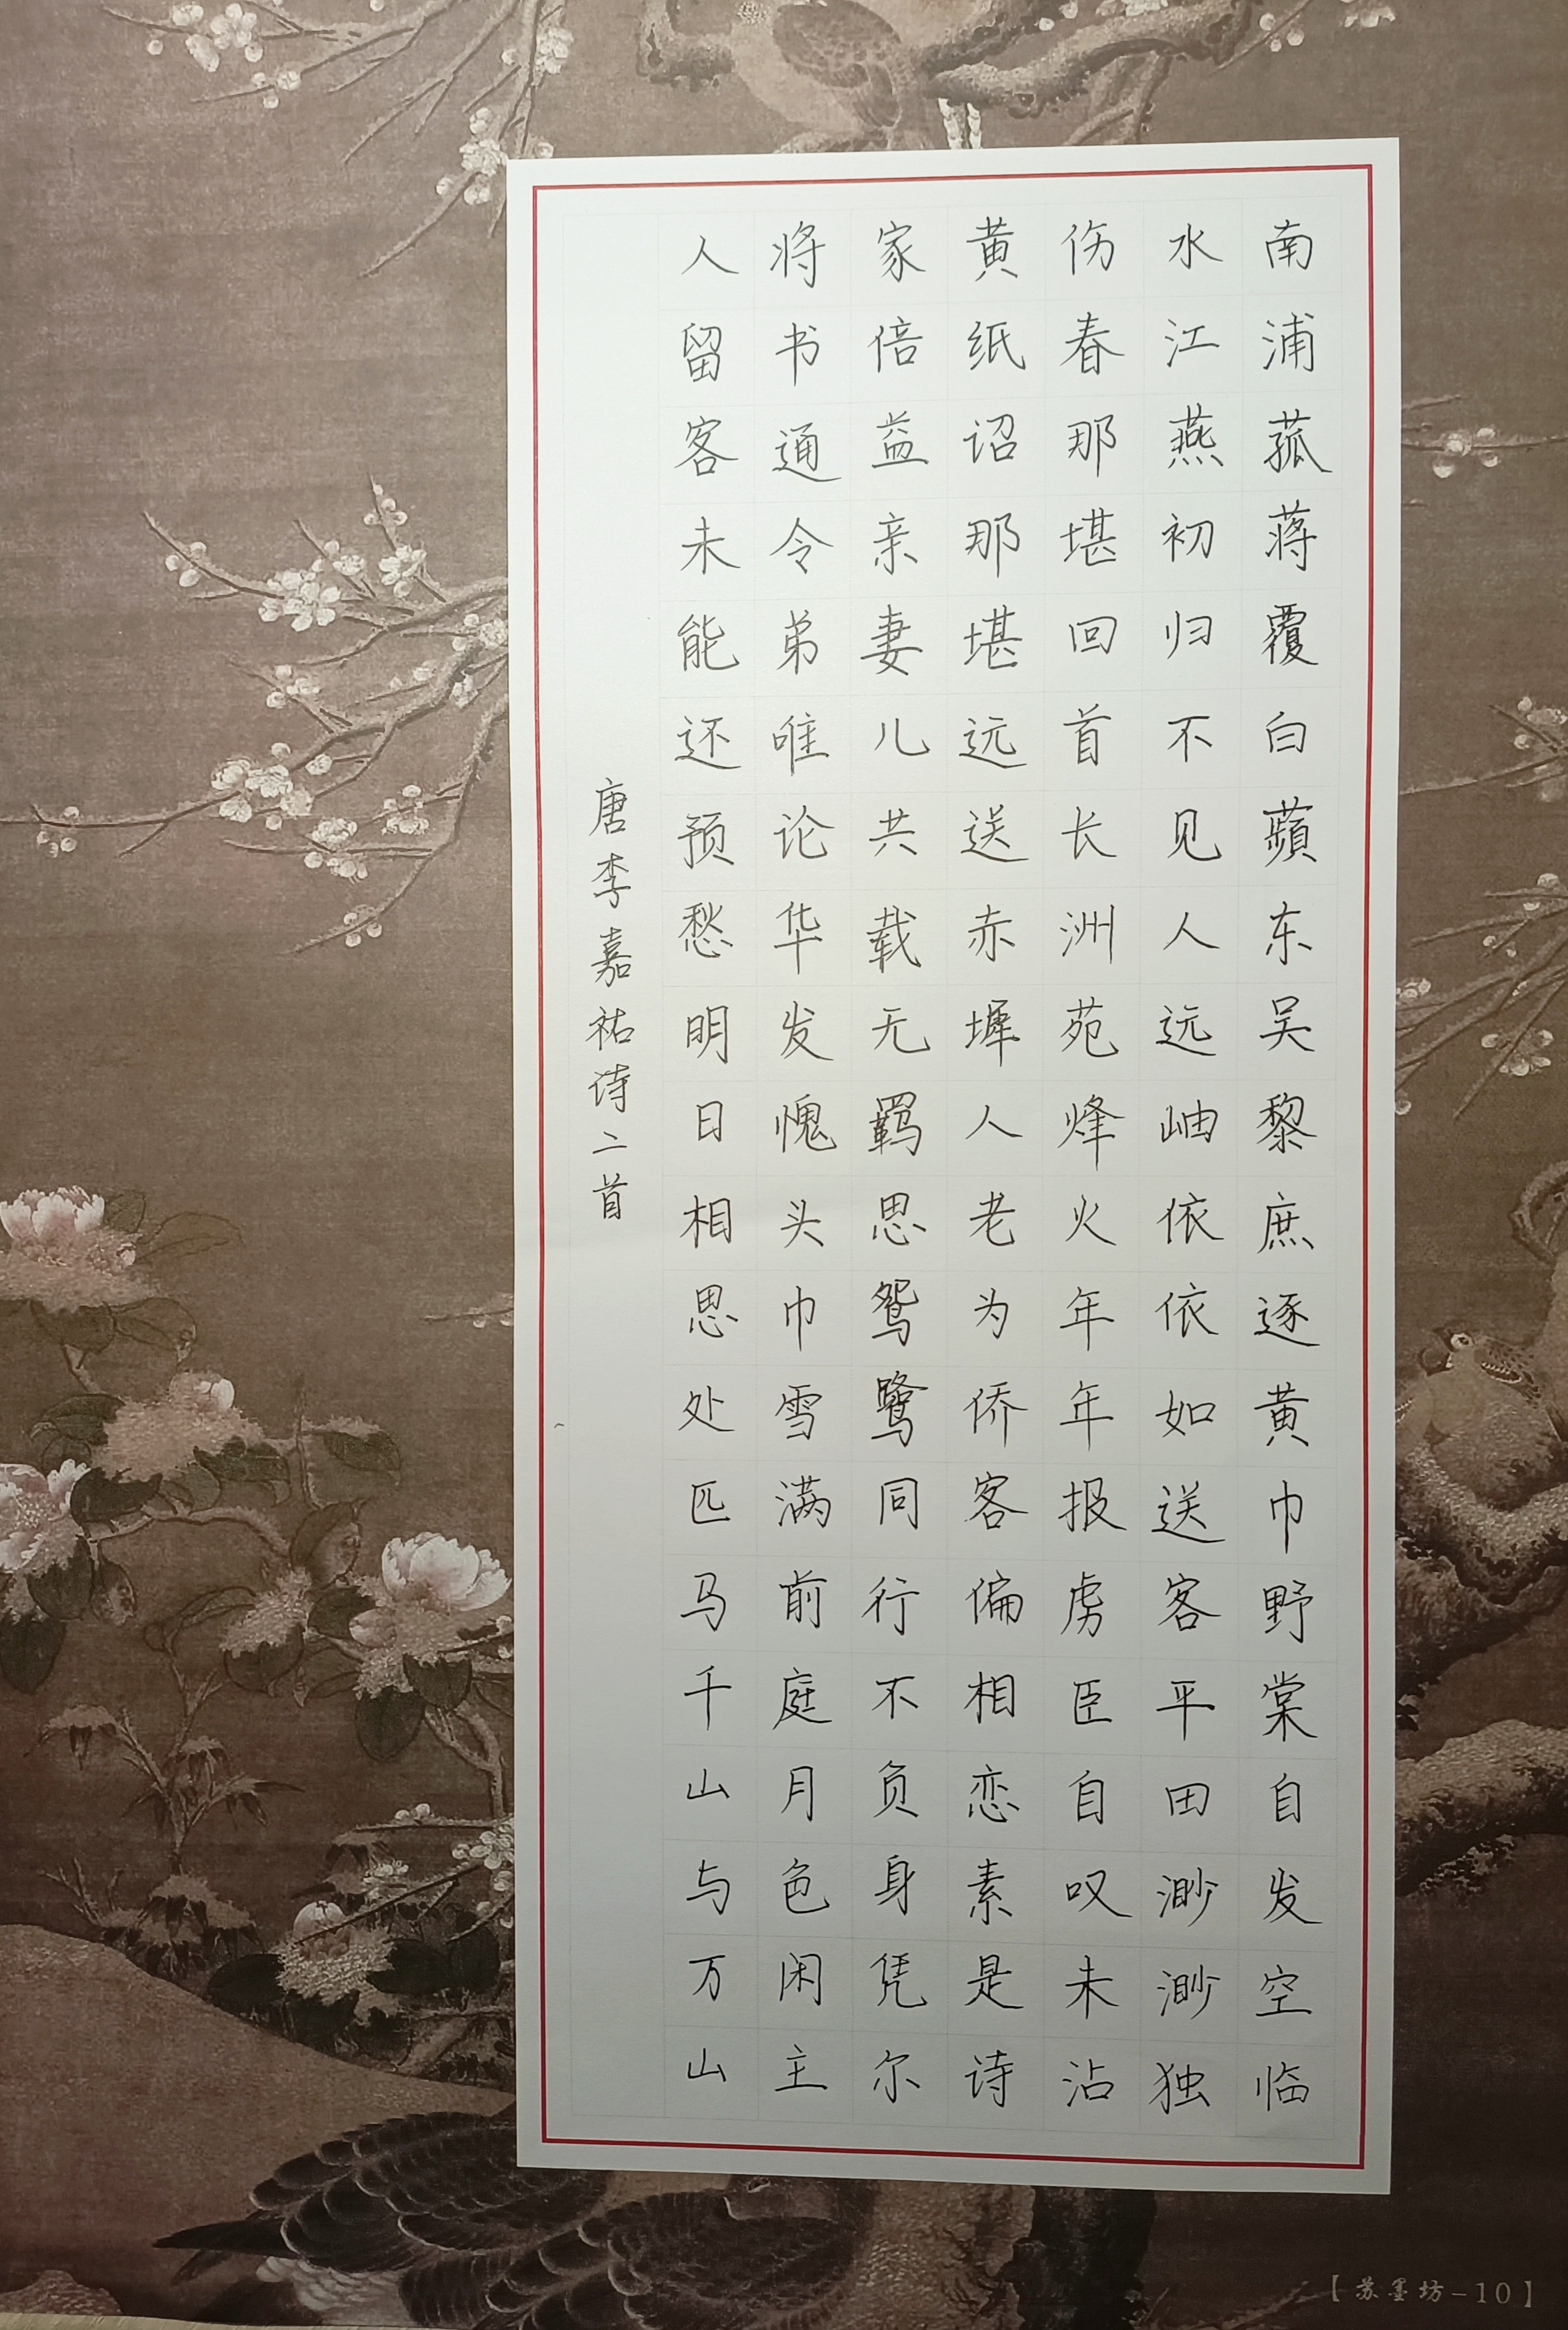 南浦菰蒋覆白蘋东吴黎庶逐黄巾野棠自发空临
水江燕初归不见人远岫依依如送客平田渺渺独
伤春那堪回首长洲苑烽火年年报虏臣自叹未沾
黄纸诏那堪远送赤墀人老为侨客偏相恋素是诗
家倍益亲妻儿共载无羁思鸳鹭同行不负身凭尔
将书通令弟唯论华发愧头巾雪满前庭月色闲主
人留客未能还预愁明日相思处匹马千山与万山
唐李嘉祐诗二首
【苏墨坊-10】